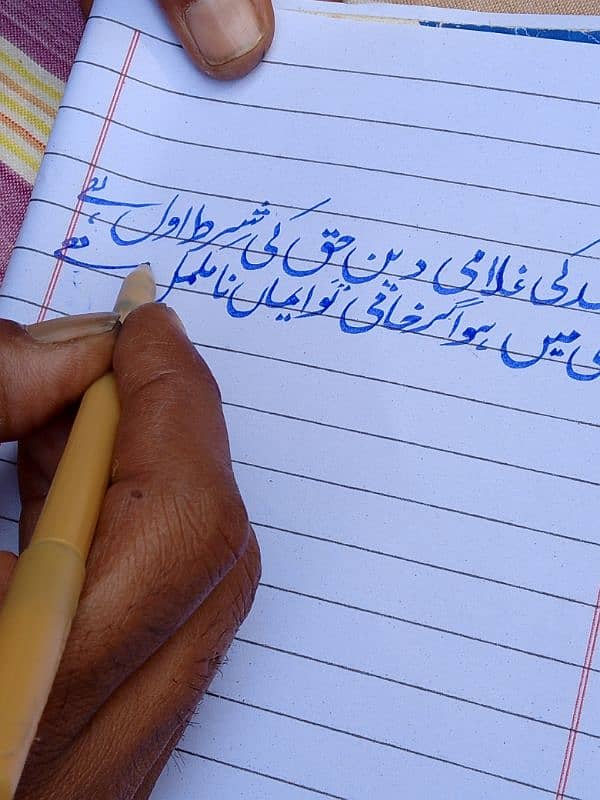 کی غلامی دین حق کی شرط اول ہے
میں ہو اگر خامی تو ایماں نامکمل ہے